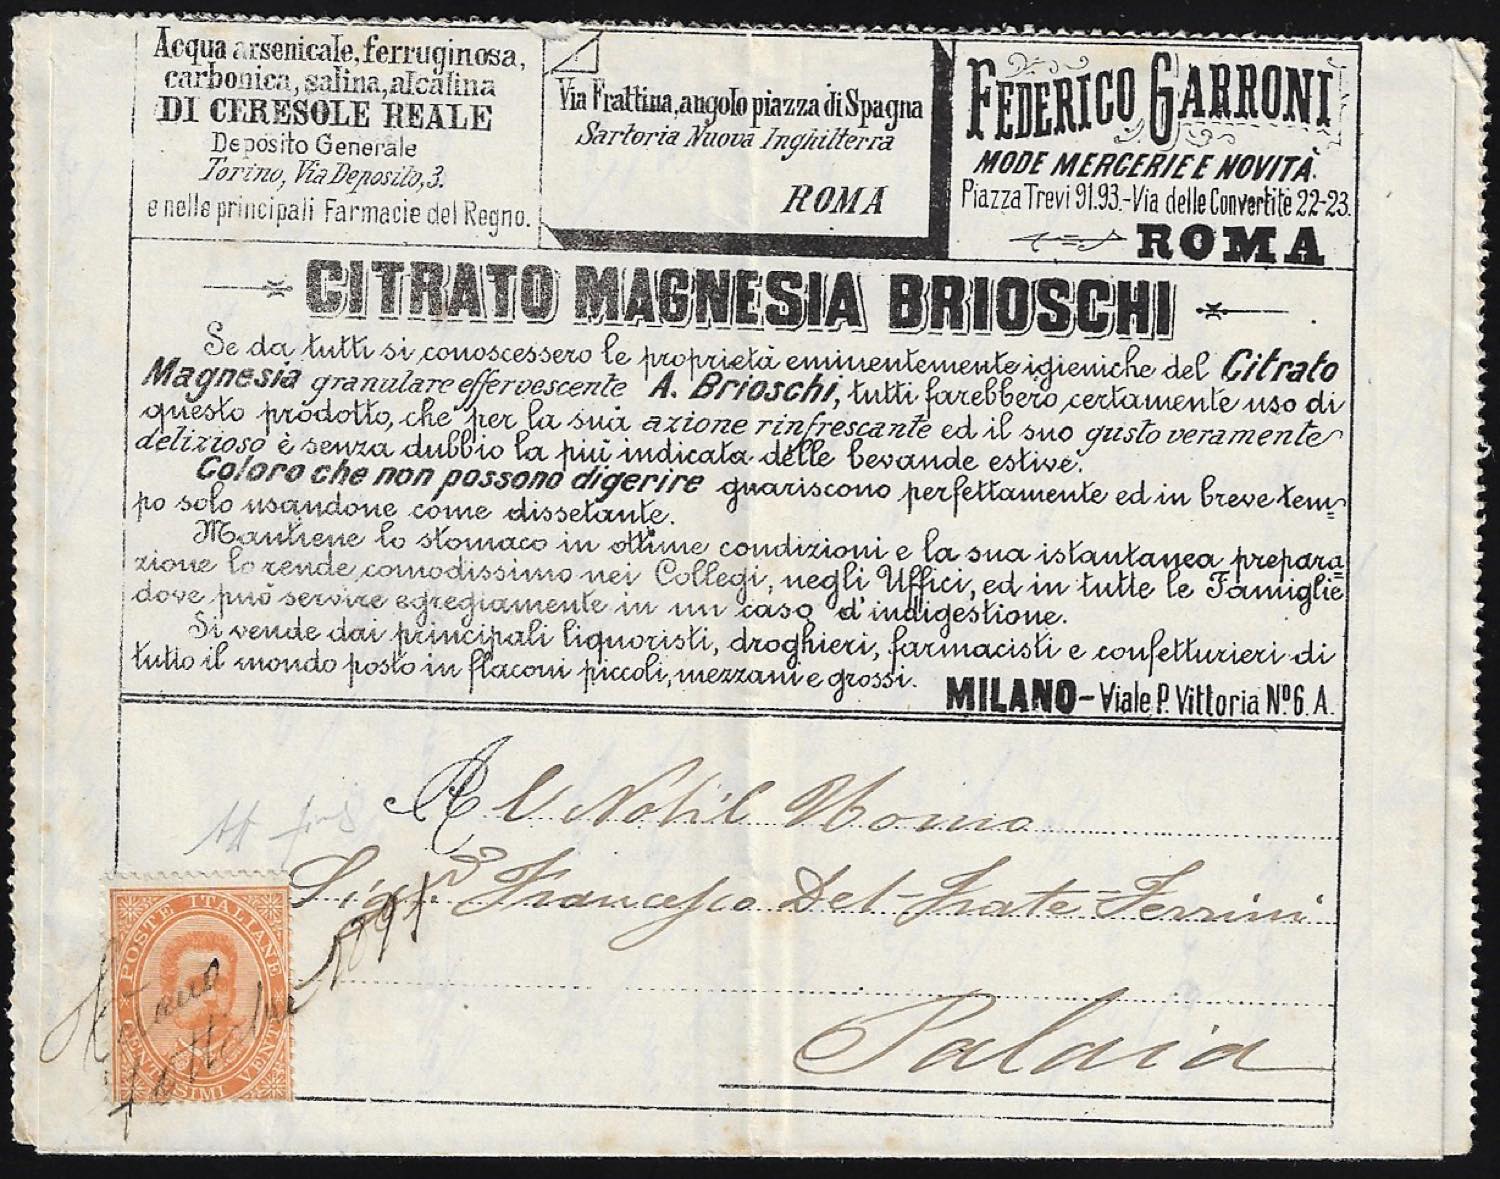 Acqua arsenicale, ferruginosa,
carbonica, salina, alcalina
DI CERESOLE REALE
Deposito Generale
Torino, Via Deposito, 3.
e nelle principali Farmacie del Regno.
Via Frattina, angolo piazza di Spagna
Sartoria Nuova Inghilterra
ROMA
FEDERICO GARRONI
MODE MERCERIE E NOVITÀ
Piazza Trevi 91.93.-Via delle Convertite 22-23.
ROMA
CITRATO MAGNESIA BRIOSCHI
Se da tutti si conoscessero le proprietà eminentemente igieniche del Citrato
Magnesia granulare effervescente A. Brioschi, tutti farebbero certamente uso di
questo prodotto, che per la sua azione rinfrescante ed il suo gusto veramente
delizioso è senza dubbio la più indicata delle bevande estive.
Coloro che non possono digerire guariscono perfettamente ed in breve tem=
po solo usandone come dissetante.
Mantiene lo stomaco in ottime condizioni e la sua istantanea prepara=
zione lo rende comodissimo nei Collegi, negli Uffici, ed in tutte le Famiglie
dove può servire egregiamente in un caso d'indigestione.
Si vende dai principali liquoristi, droghieri, farmacisti e confetturieri di
tutto il mondo posto in flaconi piccoli, mezzani e grossi.
MILANO - Viale P. Vittoria Nº 6. A.
Al Nobil Uomo
Sigr Francesco Del-Frate-Ferrini
Palaia
POSTE ITALIANE
CENTESIMI VENTI
1891